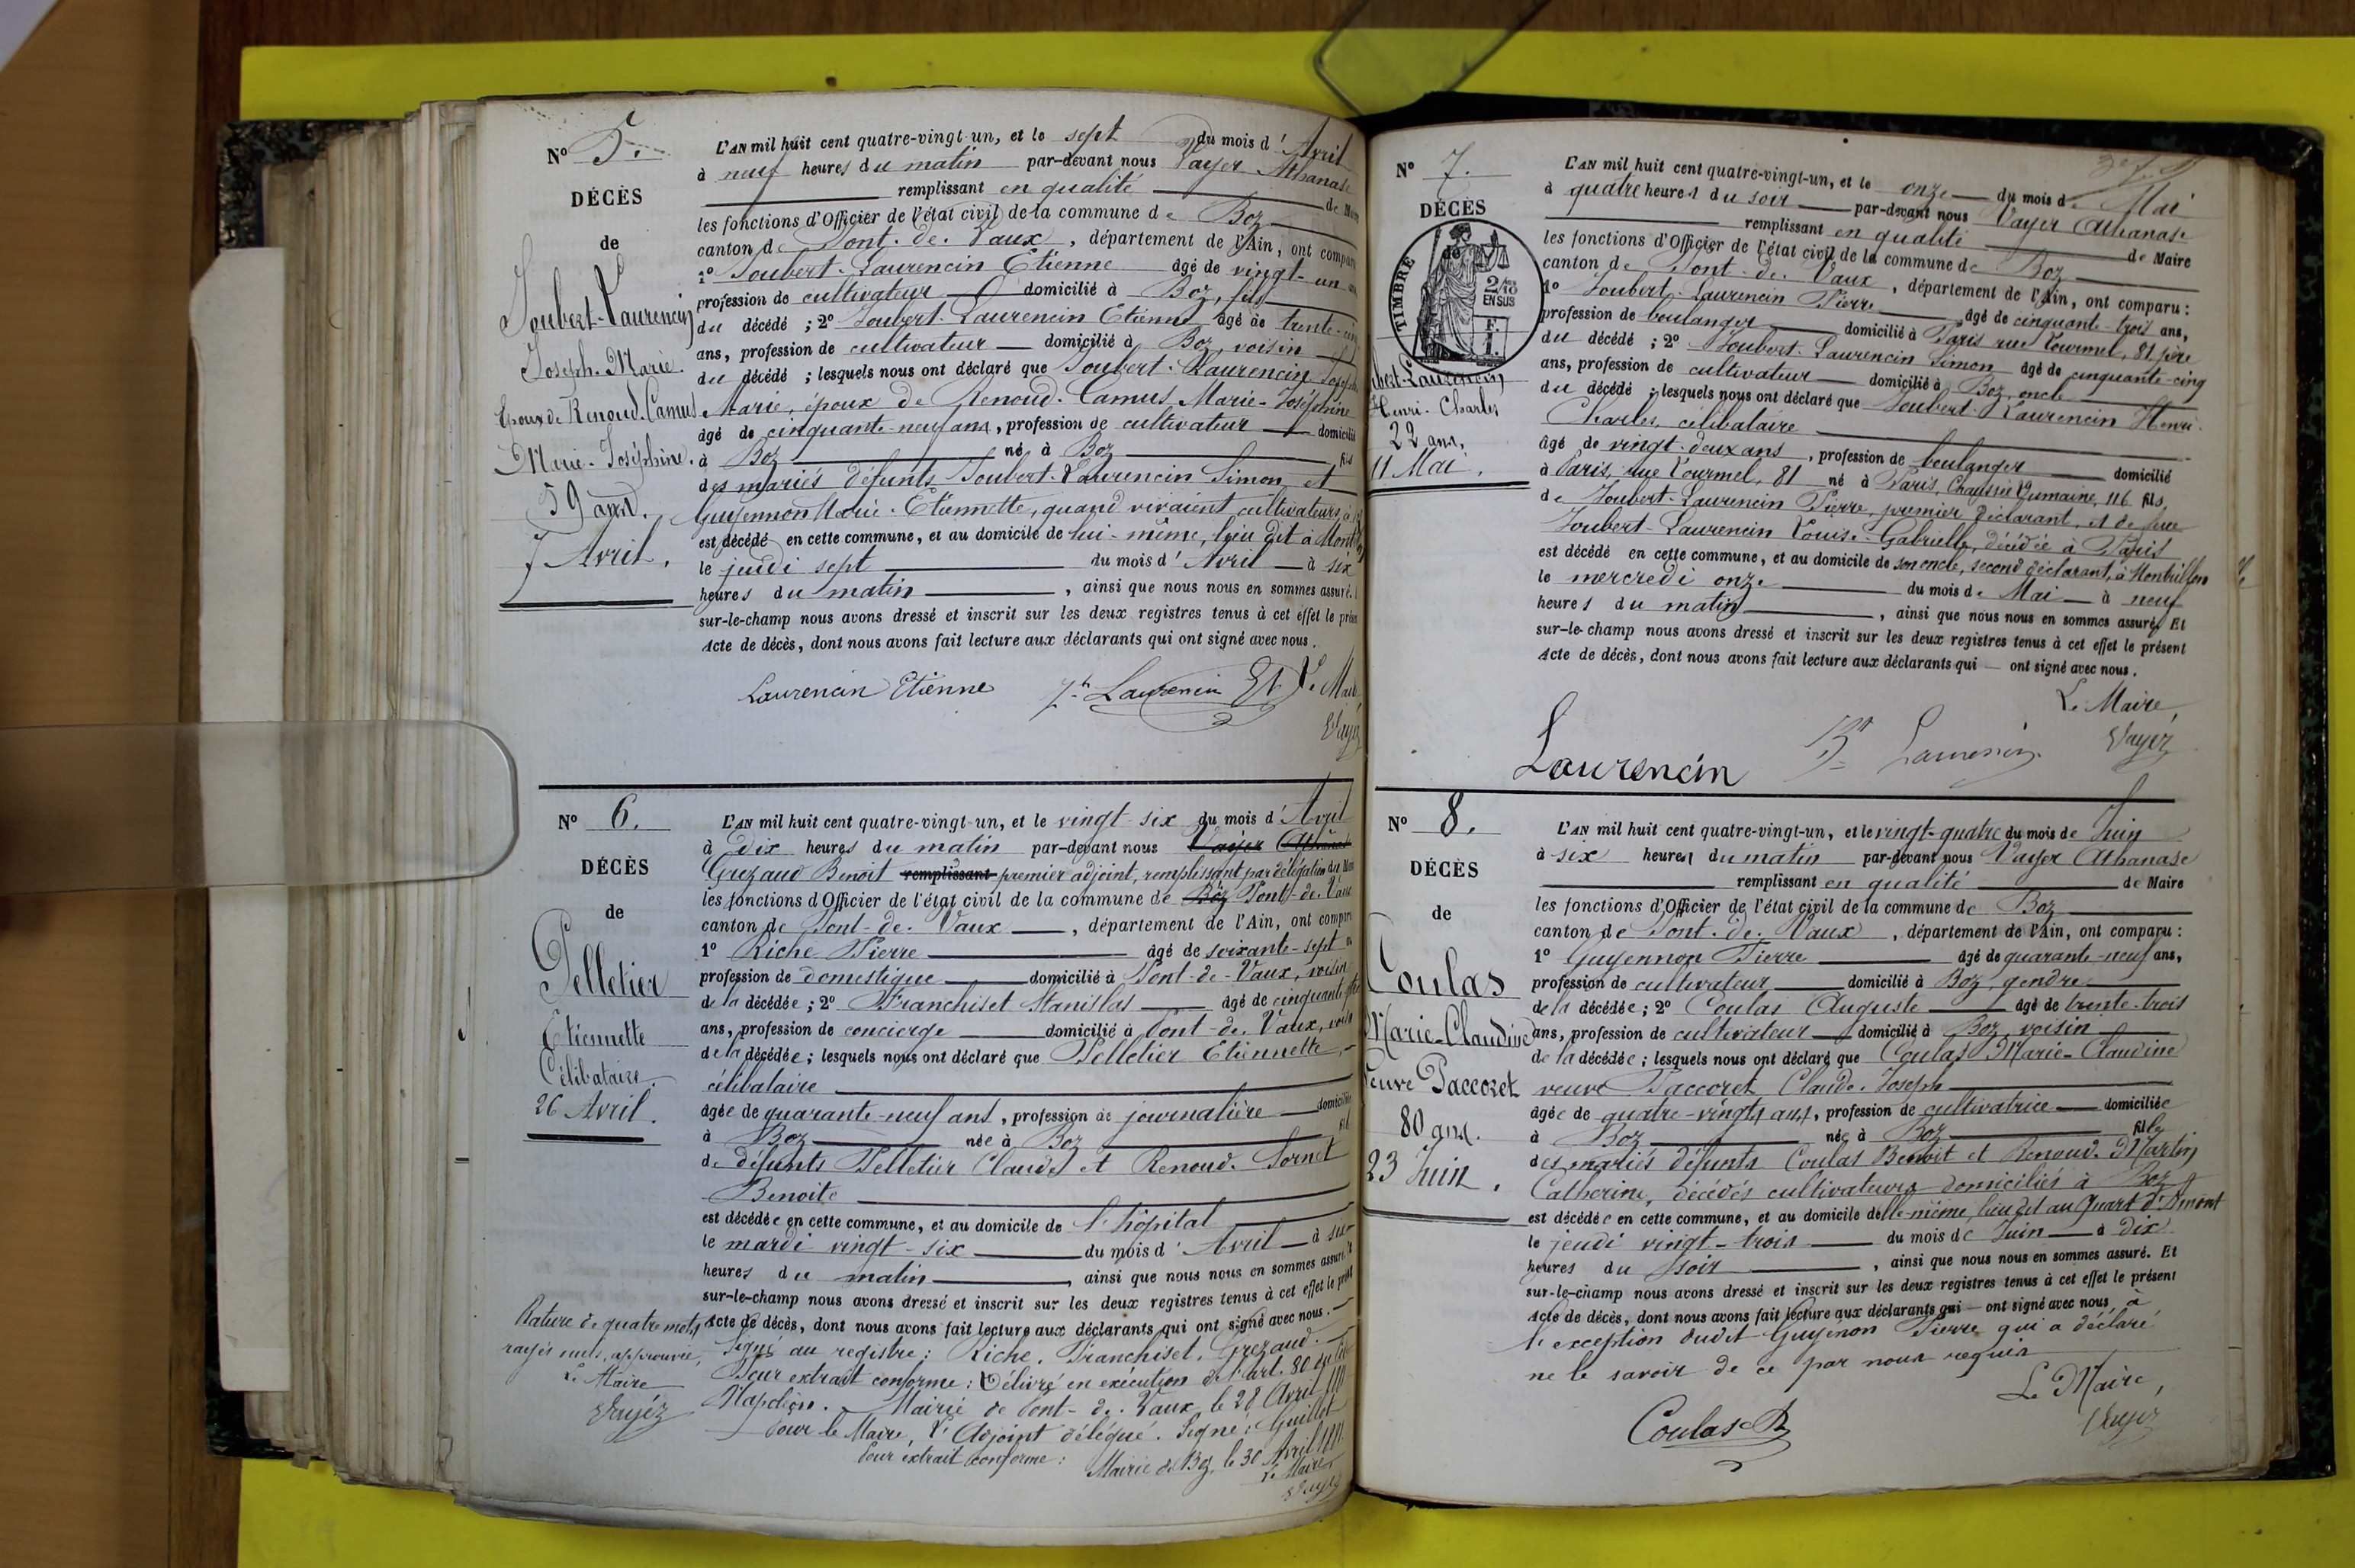 N° 5.
DÉCÈS
de
Joubert-Laurencin
Joseph-Marie.
Époux de Renoud-Camus
Marie-Joséphine.
59 ans.
7 Avril.
L'AN mil huit cent quatre-vingt-un, et le sept du mois d'Avril
à neuf heures du matin par-devant nous Vayer Athanase
remplissant en qualité de Maire
les fonctions d'Officier de l'état civil de la commune de Boz
canton de Pont-de-Vaux, département de l'Ain, ont comparu
1° Joubert-Laurencin Etienne âgé de vingt-un ans
profession de cultivateur domicilié à Boz, fils
du décédé; 2° Joubert-Laurencin Etienne âgé de trente-cinq
ans, profession de cultivateur domicilié à Boz, voisin
du décédé; lesquels nous ont déclaré que Joubert-Laurencin Joseph
Marie, époux de Renoud-Camus Marie-Joséphine
âgé de cinquante-neuf ans, profession de cultivateur domicilié
à Boz né à Boz fils
des mariés défunts Joubert-Laurencin Simon et
Guyennon Marie-Etiennette, quand vivaient cultivateurs à
est décédé en cette commune, et au domicile de lui-même, lieu dit à
le jeudi sept du mois d'Avril à six
heures du matin, ainsi que nous nous en sommes assuré.
sur-le-champ nous avons dressé et inscrit sur les deux registres tenus à cet effet le présent
Acte de décès, dont nous avons fait lecture aux déclarants qui ont signé avec nous.
Laurencin Etienne Jt Laurencin Et Le Maire
Vayer
N° 6.
DÉCÈS
de
Pelletier
Etiennette
Célibataire.
26 Avril.
L'AN mil huit cent quatre-vingt-un, et le vingt-six du mois d'Avril
à dix heures du matin par-devant nous Vayer Athanase
Grezaud Benoit remplissant premier adjoint, remplissant par délégation du Maire
les fonctions d'Officier de l'état civil de la commune de Boz Pont-de-Vaux
canton de Pont-de-Vaux, département de l'Ain, ont comparu
1° Riche Pierre âgé de soixante-sept
profession de domestique domicilié à Pont-de-Vaux, voisin
de la décédée; 2° Franchiset Stanislas âgé de cinquante
ans, profession de concierge domicilié à Pont-de-Vaux, voisin
de la décédée; lesquels nous ont déclaré que Pelletier Etiennette,
célibataire
âgée de quarante-neuf ans, profession de journalière domiciliée
à Boz née à Boz
de défunts Pelletier Claude et Renoud-Sornet
Benoite
est décédée en cette commune, et au domicile de l'hôpital
le mardi vingt-six du mois d'Avril à six
heures du matin, ainsi que nous nous en sommes assuré.
sur-le-champ nous avons dressé et inscrit sur les deux registres tenus à cet effet le présent
Acte de décès, dont nous avons fait lecture aux déclarants qui ont signé avec nous.
Signé au registre: Riche, Franchiset, Grezaud.
Pour extrait conforme: Délivré en exécution de l'art. 80 du Code
Napoléon. Mairie de Pont-de-Vaux, le 28 Avril 1881
Pour le Maire, l'Adjoint délégué. Signé: Guillot
Pour extrait conforme: Mairie de Boz, le 30 Avril 1881.
Le Maire
Vayer
Rature de quatre mots
rayés nuls, approuvée,
Le Maire
Vayer
N° 7.
DÉCÈS
de
TIMBRE
2/10 EN SUS
F. I.
Joubert-Laurencin
Henri-Charles
22 ans.
11 Mai.
L'AN mil huit cent quatre-vingt-un, et le onze du mois de Mai
à quatre heures du soir par-devant nous Vayer Athanase
remplissant en qualité de Maire
les fonctions d'Officier de l'état civil de la commune de Boz
canton de Pont-de-Vaux, département de l'Ain, ont comparu:
1° Joubert-Laurencin Pierre âgé de cinquante-trois ans,
profession de boulanger domicilié à Paris rue Lourmel, 81, père
du décédé; 2° Joubert-Laurencin Simon âgé de cinquante-cinq
ans, profession de cultivateur domicilié à Boz, oncle
du décédé; lesquels nous ont déclaré que Joubert-Laurencin Henri-
Charles, célibataire
âgé de vingt-deux ans, profession de boulanger domicilié
à Paris, rue Lourmel, 81 né à Paris, Chaussée Dumaine, 116 fils
de Joubert-Laurencin Pierre, premier déclarant, et de feue
Joubert-Laurencin Louise-Gabrielle, décédée à Paris
est décédé en cette commune, et au domicile de son oncle, second déclarant, à Montrillon
le mercredi onze du mois de Mai à neuf
heures du matin, ainsi que nous nous en sommes assuré. Et
sur-le-champ nous avons dressé et inscrit sur les deux registres tenus à cet effet le présent
Acte de décès, dont nous avons fait lecture aux déclarants qui ont signé avec nous.
Le Maire,
Laurencin Jt Laurencin Vayer
N° 8.
DÉCÈS
de
Coulas
Marie-Claudine
Veuve Paccoret
80 ans.
23 Juin.
L'AN mil huit cent quatre-vingt-un, et le vingt-quatre du mois de Juin
à six heures du matin par-devant nous Vayer Athanase
remplissant en qualité de Maire
les fonctions d'Officier de l'état civil de la commune de Boz
canton de Pont-de-Vaux, département de l'Ain, ont comparu:
1° Guyennon Pierre âgé de quarante-neuf ans,
profession de cultivateur domicilié à Boz, gendre
de la décédée; 2° Coulas Auguste âgé de trente-trois
ans, profession de cultivateur domicilié à Boz, voisin
de la décédée; lesquels nous ont déclaré que Coulas Marie-Claudine
veuve Paccoret Claude-Joseph
âgée de quatre-vingts ans, profession de cultivatrice domiciliée
à Boz née à Boz fille
des mariés défunts Coulas Benoit et Renoud-Martin
Catherine, décédés cultivateurs domiciliés à Boz
est décédée en cette commune, et au domicile d'elle-même, lieu dit au Quart d'Amont
le jeudi vingt-trois du mois de Juin à dix
heures du soir, ainsi que nous nous en sommes assuré. Et
sur-le-champ nous avons dressé et inscrit sur les deux registres tenus à cet effet le présent
Acte de décès, dont nous avons fait lecture aux déclarants qui ont signé avec nous, à
l'exception dudit Guyenon Pierre qui a déclaré
ne le savoir de ce par nous requis
Le Maire,
Coulas A Vayer